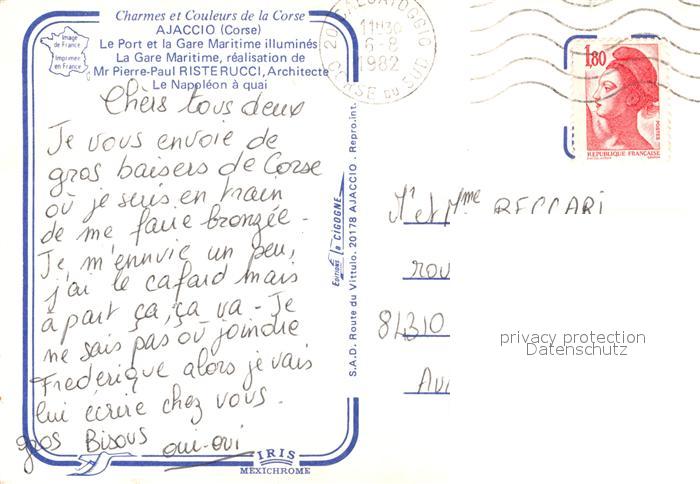 Charmes et Couleurs de la Corse
AJACCIO (Corse)
Le Port et la Gare Maritime illuminés
La Gare Maritime, réalisation de
Mr Pierre-Paul RISTERUCCI, Architecte
Le Napoléon à quai
Image
de France
Imprimée
en France
Chèrs tous deux
Je vous envoie de
gros baisers de Corse
où je suis en train
de me faire bronzée -
Je m'ennvie un peu,
j'ai le cafard mais
à part ça, ça va - Je
ne sais pas où joindre
Frederique alors je vais
lui écrire chez vous.
gros Bisous
oui-oui
IRIS
MEXICHROME
Editions la CIGOGNE
S.A.D. Route du Vittulo. 20178 AJACCIO. Repro.int.
11H30
6-8
1982
CORSE DU SUD
1,80
POSTES
REPUBLIQUE FRANÇAISE
Mr et Mme
rou
81310
privacy protection
Datenschutz